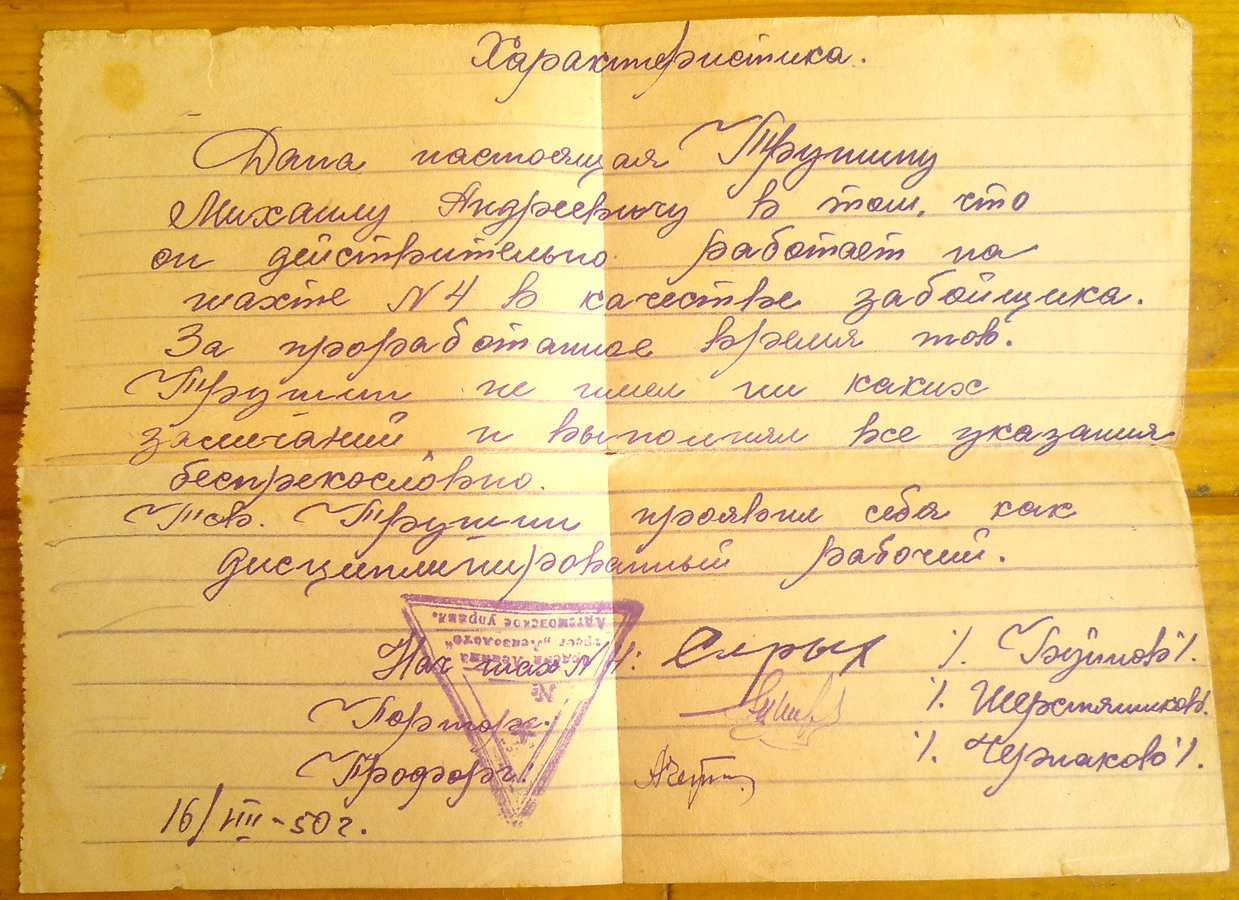 Характеристика.
Дана настоящая Трушину
Михаилу Андреевичу в том, что
он действительно работает на
шахте N 4 в качестве забойщика.
За проработанное время тов.
Трушин не имел ни каких
замечаний и выполнял все указания
беспрекословно.
Тов. Трушин проявил себя как
дисциплинированный рабочий.
Нач шах N 4: /. Буйнов/.
Парторг. /. Шерстянников/.
Профорг. /. Черпаков/.
16/VIII-50 г.
Артемовское управл.
трест „Лензолото"
шахта Ленина
№